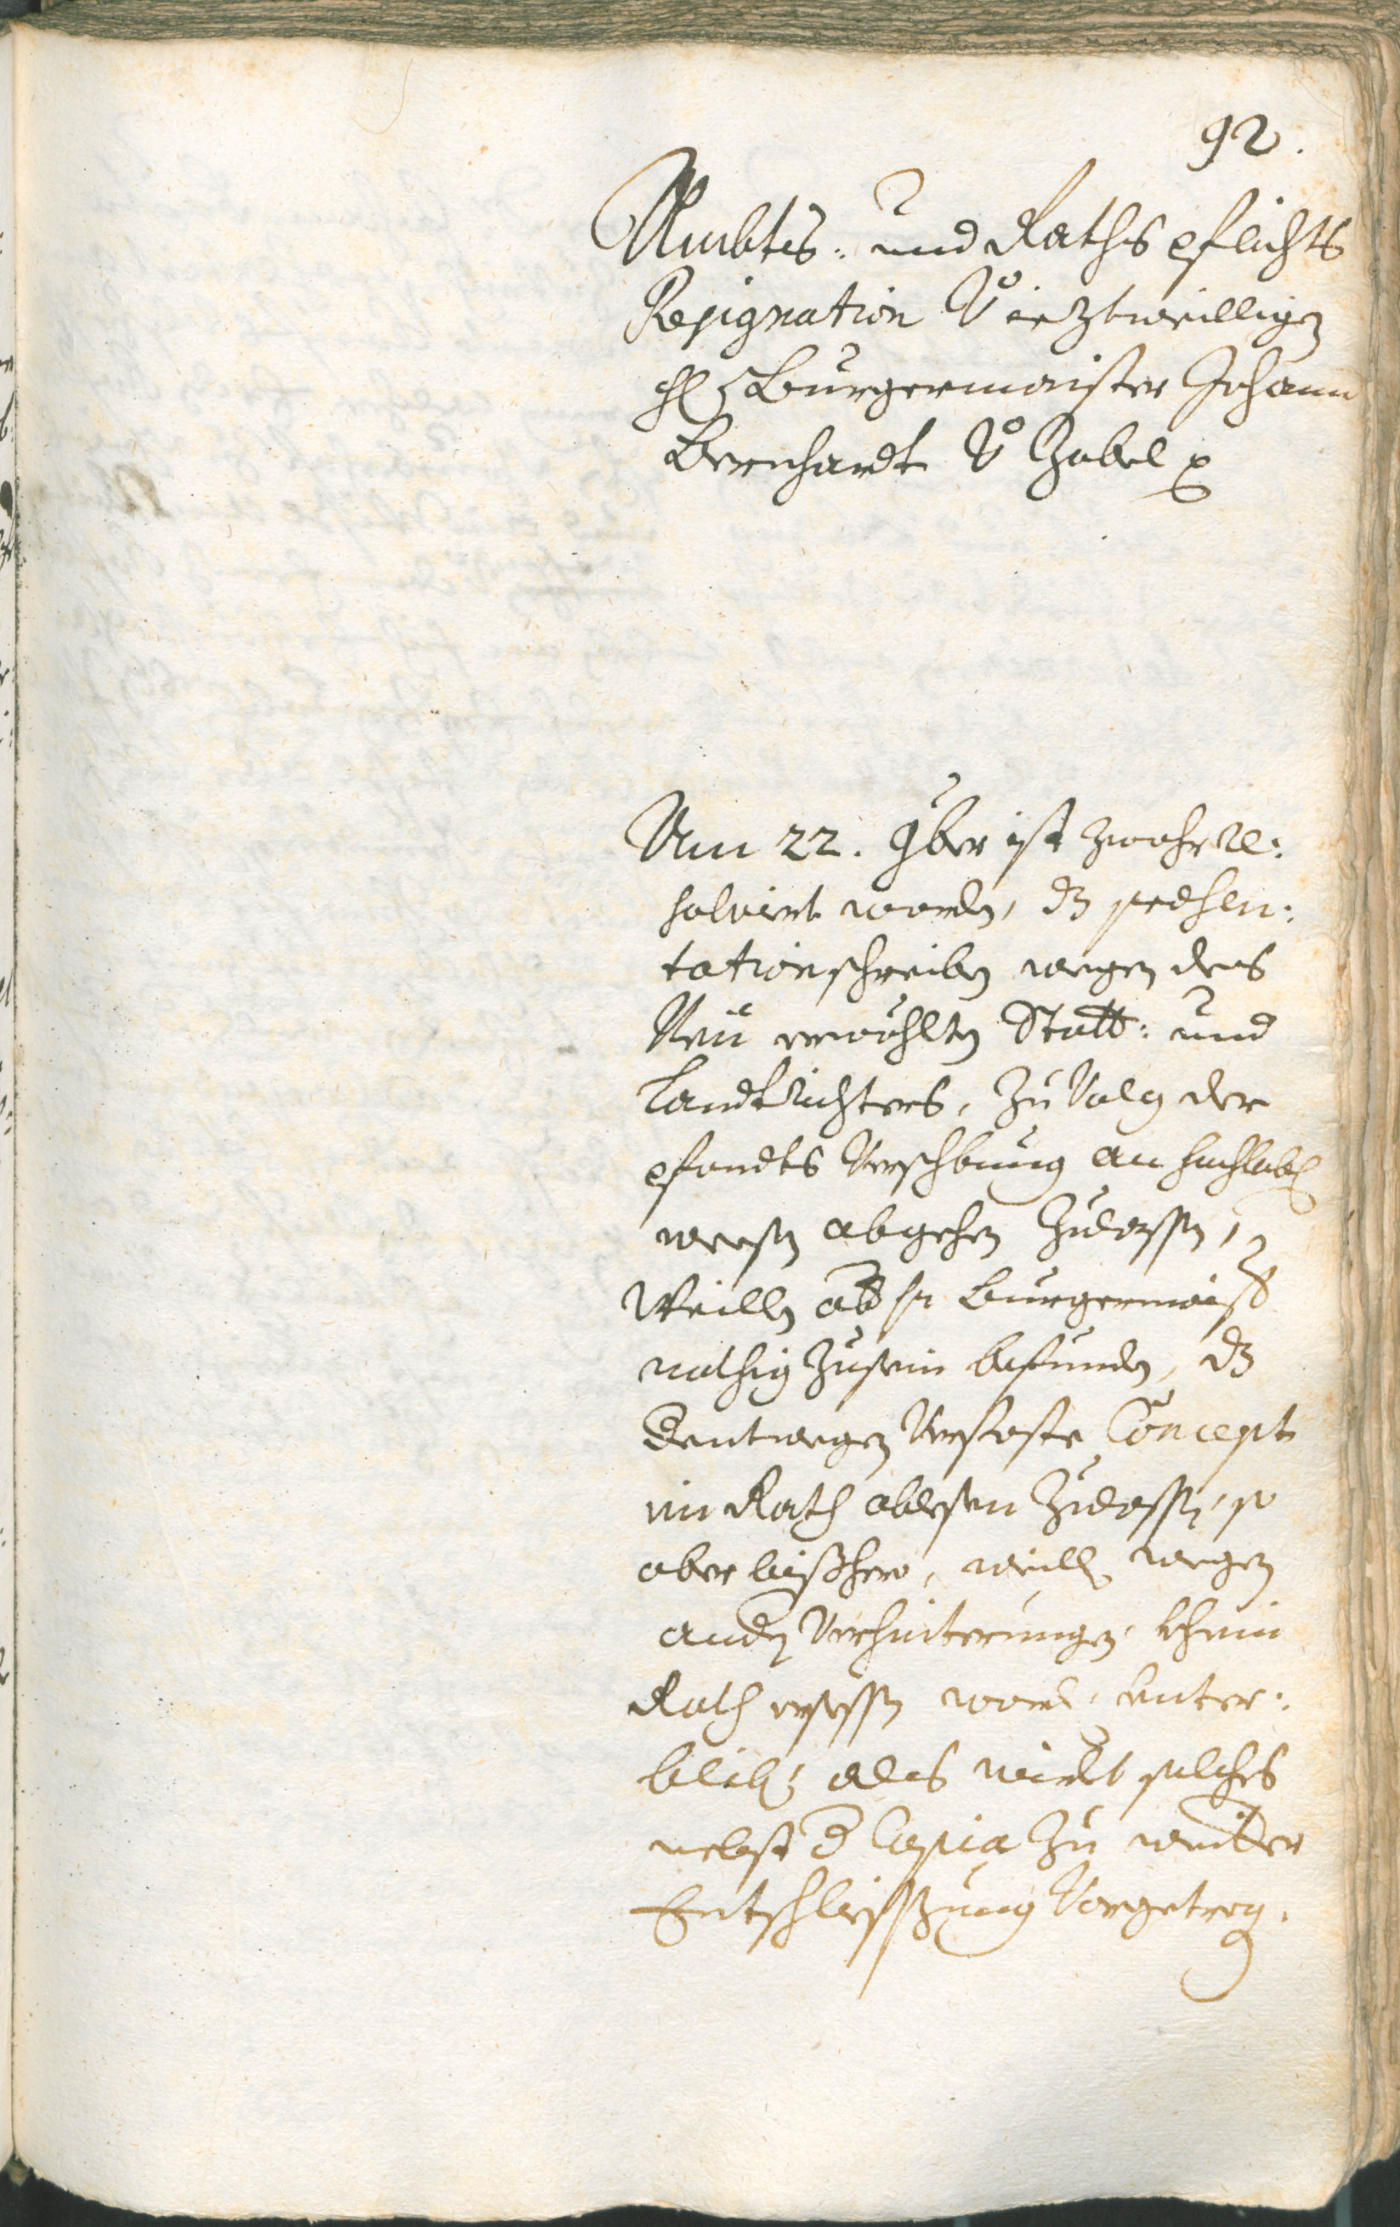 92.
Ambts: und Raths pflichts
Resignation Vo ietztweilligen
H Burgermaister Johann
Bernhardt Vo Zabel
Am 22. 9ber ist zwahr re:
solvirt worden, dz presen:
tation schreiben wegen des
Neü erwöhlten Statt: und
Landtrichters, zu Volg der
pfandts Verschbung an
abgehen zulassen,
Weillen aber H Burgermaist
nothig zusein befunden, dz
dentwegen Verfaste Concept
im Rath ablesen zulassen, so
aber bißhero, weill wegen
andern Verhinterungen, khein
Rath gesessen worden, unter:
bliben; als wirdt solches
nebst d Copia zu weitter
Entschliessung Vorgetrag.